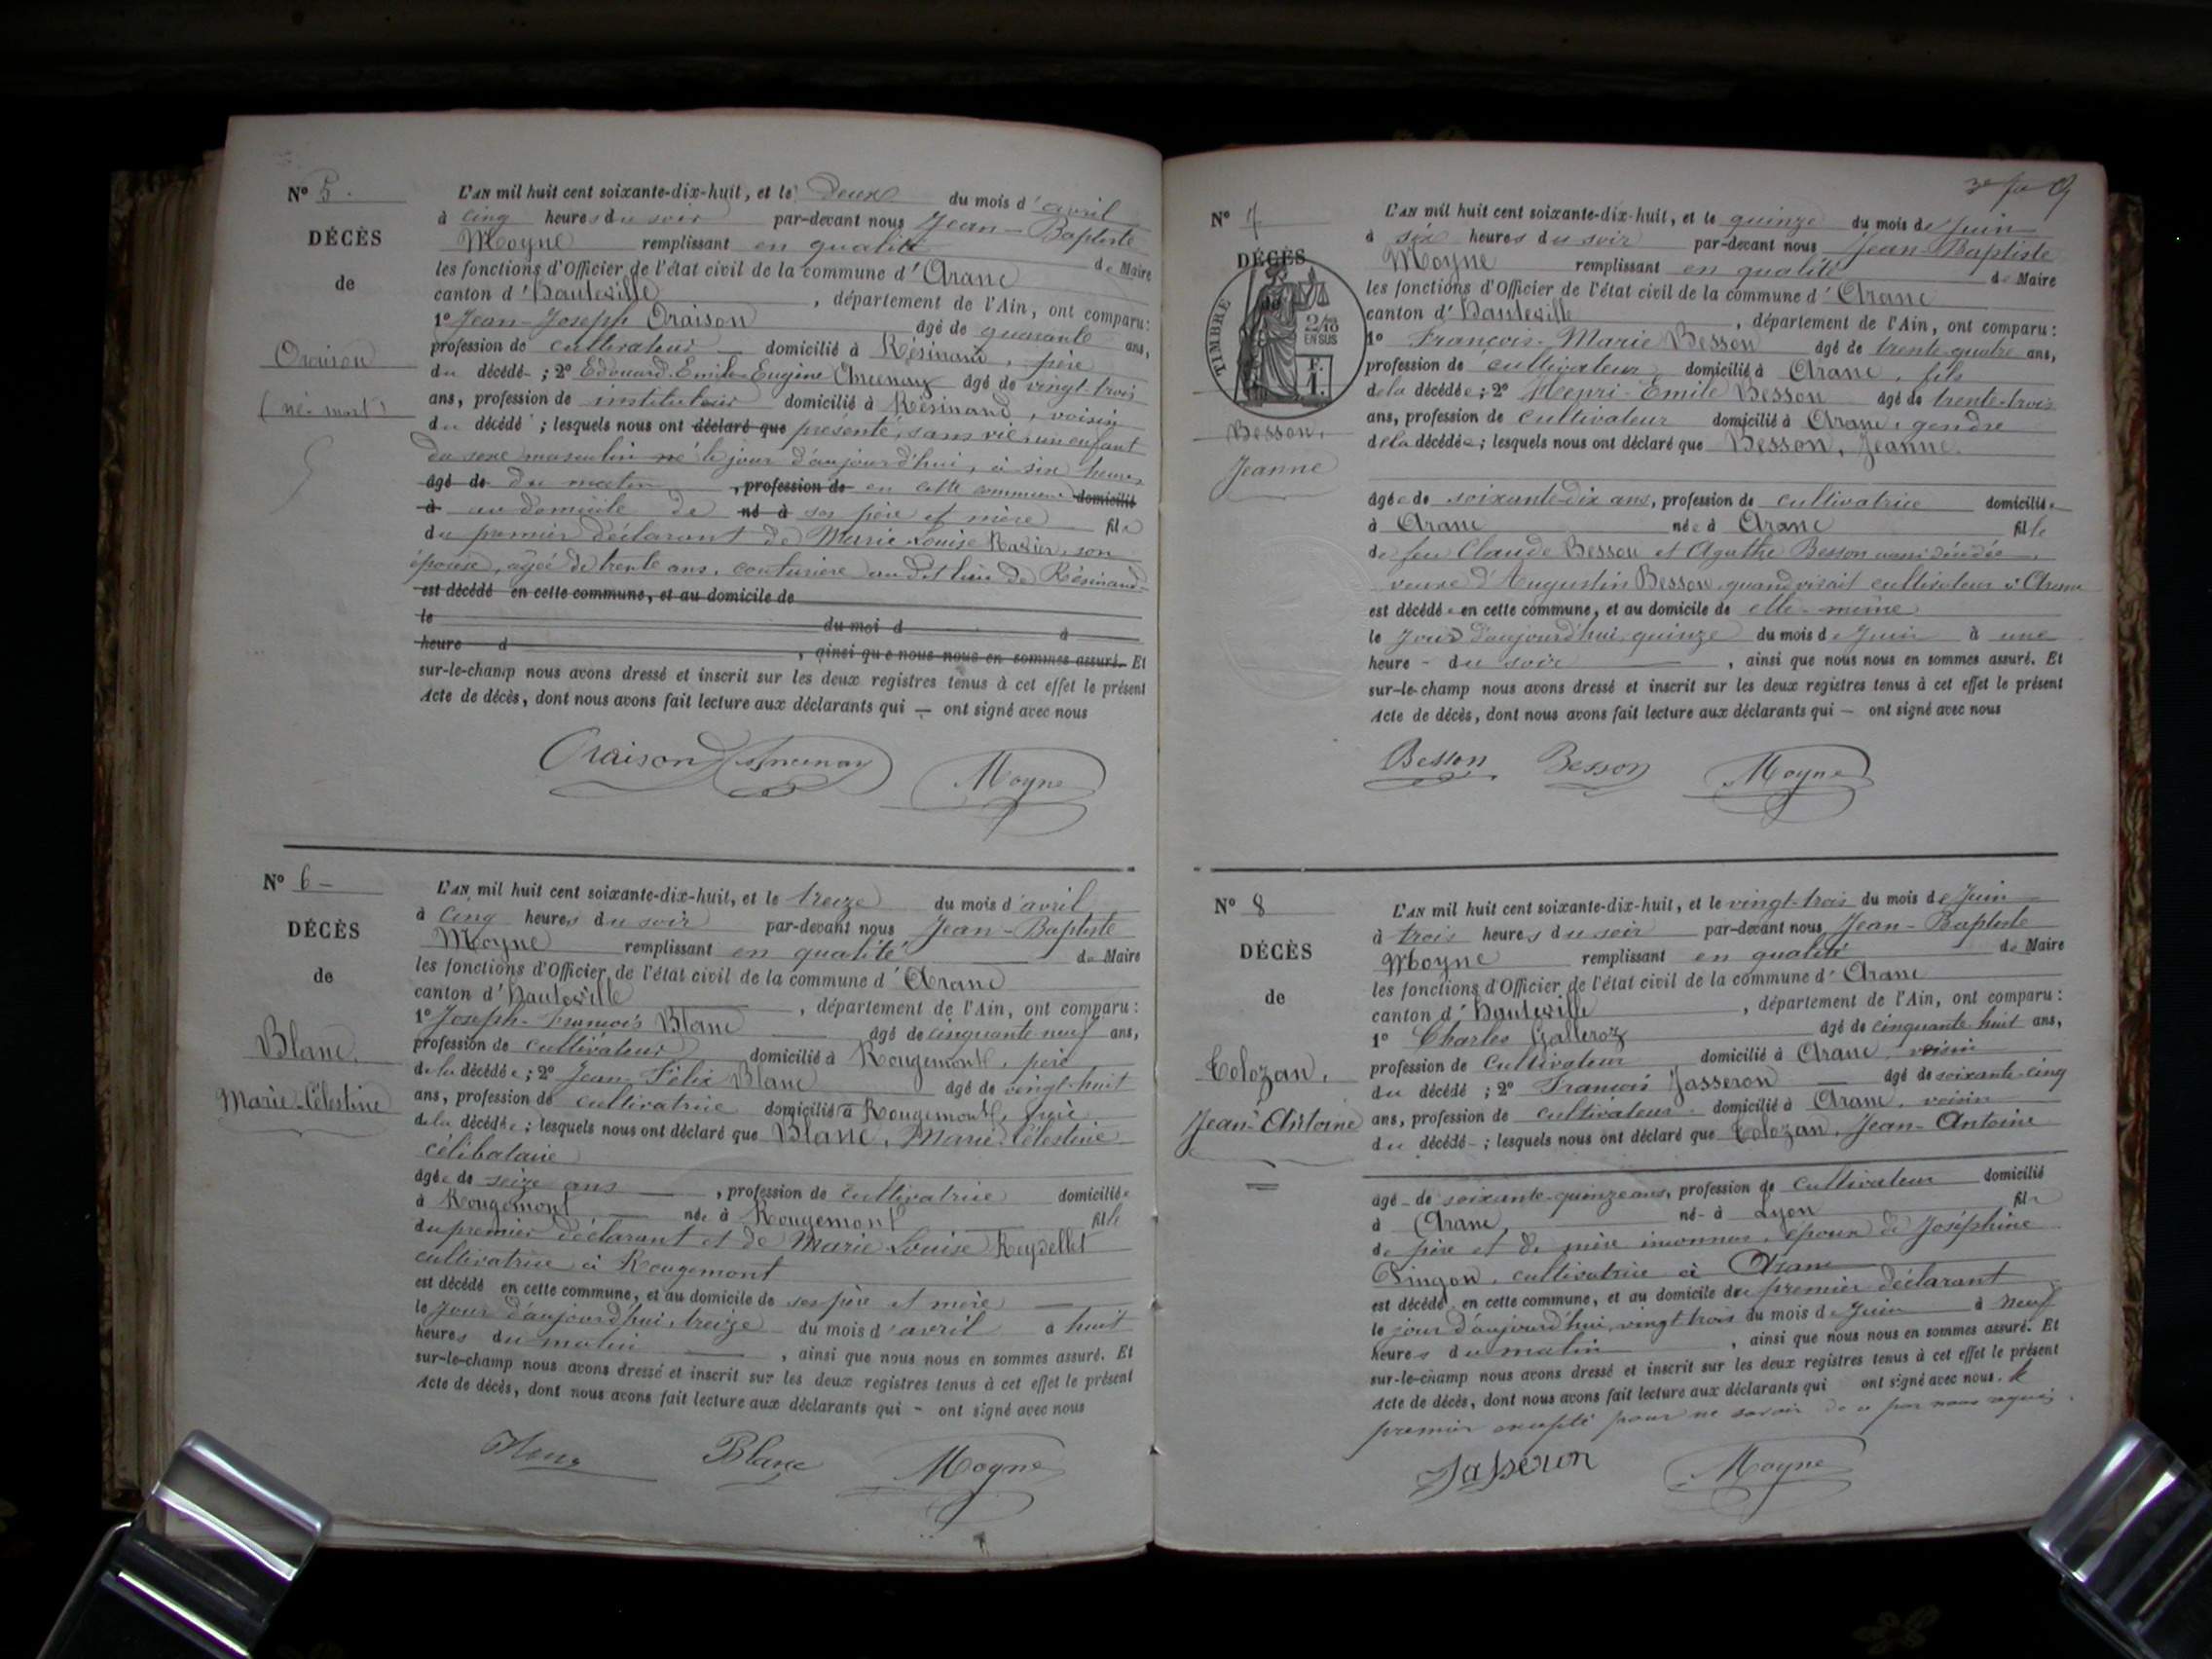 Nº 5.
DÉCÈS
de
Oraison
(né-mort)
L'AN mil huit cent soixante-dix-huit, et le deux du mois d'avril
à cinq heures du soir par-devant nous Jean-Baptiste
Moyne remplissant en qualité de Maire
les fonctions d'Officier de l'état civil de la commune d'Aranc
canton d'Hauteville, département de l'Ain, ont comparu:
1º Jean-Joseph Oraison âgé de quarante ans,
profession de cultivateur — domicilié à Résinand, père
du décédé-; 2º Edouard-Emile-Eugène âgé de vingt-trois
ans, profession de instituteur domicilié à Résinand, voisin
du décédé; lesquels nous ont déclaré que présenté, sans vie, un enfant
du sexe masculin né le jour d'aujourd'hui, à six heures
âgé de du matin, profession de en cette commune domicilié
à au domicile de né à ses père et mère fils
du premier déclarant de Marie Louise son
épouse, âgée de trente ans, couturière au dit lieu de Résinand.
est décédé en cette commune, et au domicile de
le du moi d à
heure d, ainsi que nous nous en sommes assuré. Et
sur-le-champ nous avons dressé et inscrit sur les deux registres tenus à cet effet le présent
Acte de décès, dont nous avons fait lecture aux déclarants qui — ont signé avec nous
Oraison Moyne
Nº 6 -
DÉCÈS
de
Blanc,
Marie-Célestine
L'AN mil huit cent soixante-dix-huit, et le treize du mois d'avril
à cinq heures du soir par-devant nous Jean-Baptiste
Moyne remplissant en qualité de Maire
les fonctions d'Officier de l'état civil de la commune d'Aranc
canton d'Hauteville, département de l'Ain, ont comparu:
1º Joseph-François Blanc âgé de cinquante neuf ans,
profession de cultivateur domicilié à Rougemont, père
de la décédée; 2º Jean Félix Blanc âgé de vingt-huit
ans, profession de cultivatrice domicilié à Rougemont, frère
de la décédée; lesquels nous ont déclaré que Blanc, Marie-Célestine
célibataire
âgée de seize ans —, profession de cultivatrice domiciliée
à Rougemont — née à Rougemont fille
du premier déclarant et de Marie Louise Reydellet
cultivatrice à Rougemont
est décédé en cette commune, et au domicile de ses père et mère —
le jour d'aujourd'hui, treize du mois d'avril à huit
heures du matin —, ainsi que nous nous en sommes assuré. Et
sur-le-champ nous avons dressé et inscrit sur les deux registres tenus à cet effet le présent
Acte de décès, dont nous avons fait lecture aux déclarants qui - ont signé avec nous
Blanc Moyne
9
Nº 7
DÉCÈS
de
TIMBRE
2/10
EN SUS
F.
1.
Besson,
Jeanne
L'AN mil huit cent soixante-dix-huit, et le quinze du mois de Juin
à six heures du soir par-devant nous Jean-Baptiste
Moyne remplissant en qualité de Maire
les fonctions d'Officier de l'état civil de la commune d'Aranc
canton d'Hauteville, département de l'Ain, ont comparu:
1º François-Marie Besson âgé de trente-quatre ans,
profession de cultivateur domicilié à Aranc, fils
de la décédée; 2º Henri-Emile Besson âgé de trente-trois
ans, profession de cultivateur domicilié à Aranc, gendre
de la décédée; lesquels nous ont déclaré que Besson, Jeanne.
âgée de soixante-dix ans, profession de cultivatrice domiciliée
à Aranc née à Aranc fille
de feu Claude Besson et Agathe Besson aussi décédée,
veuve d'Augustin Besson, quand vivait cultivateur à Aranc
est décédée en cette commune, et au domicile de elle-même
le jour d'aujourd'hui, quinze du mois de Juin à une
heure - du soir —, ainsi que nous nous en sommes assuré. Et
sur-le-champ nous avons dressé et inscrit sur les deux registres tenus à cet effet le présent
Acte de décès, dont nous avons fait lecture aux déclarants qui — ont signé avec nous
Besson Besson Moyne
Nº 8
DÉCÈS
de
Tolozan,
Jean-Antoine
L'AN mil huit cent soixante-dix-huit, et le vingt-trois du mois de Juin
à trois heures du soir par-devant nous Jean-Baptiste
Moyne remplissant en qualité de Maire
les fonctions d'Officier de l'état civil de la commune d'Aranc
canton d'Hauteville, département de l'Ain, ont comparu:
1º Charles Galleroz âgé de cinquante-huit ans,
profession de cultivateur domicilié à Aranc, voisin
du décédé; 2º François Jasseron — âgé de soixante-cinq
ans, profession de cultivateur domicilié à Aranc, voisin
du décédé-; lesquels nous ont déclaré que Tolozan, Jean-Antoine
âgé- de soixante-quinze ans, profession de cultivateur domicilié
à Aranc, né- à Lyon fils
de père et de mère inconnus, époux de Joséphine
Pingon, cultivatrice à Aranc
est décédé en cette commune, et au domicile du premier déclarant
le jour d'aujourd'hui, vingt-trois du mois de Juin à neuf
heures du matin, ainsi que nous nous en sommes assuré. Et
sur-le-champ nous avons dressé et inscrit sur les deux registres tenus à cet effet le présent
Acte de décès, dont nous avons fait lecture aux déclarants qui ont signé avec nous. le
premier excepté pour ne savoir de ce par nous requis.
Jasseron Moyne